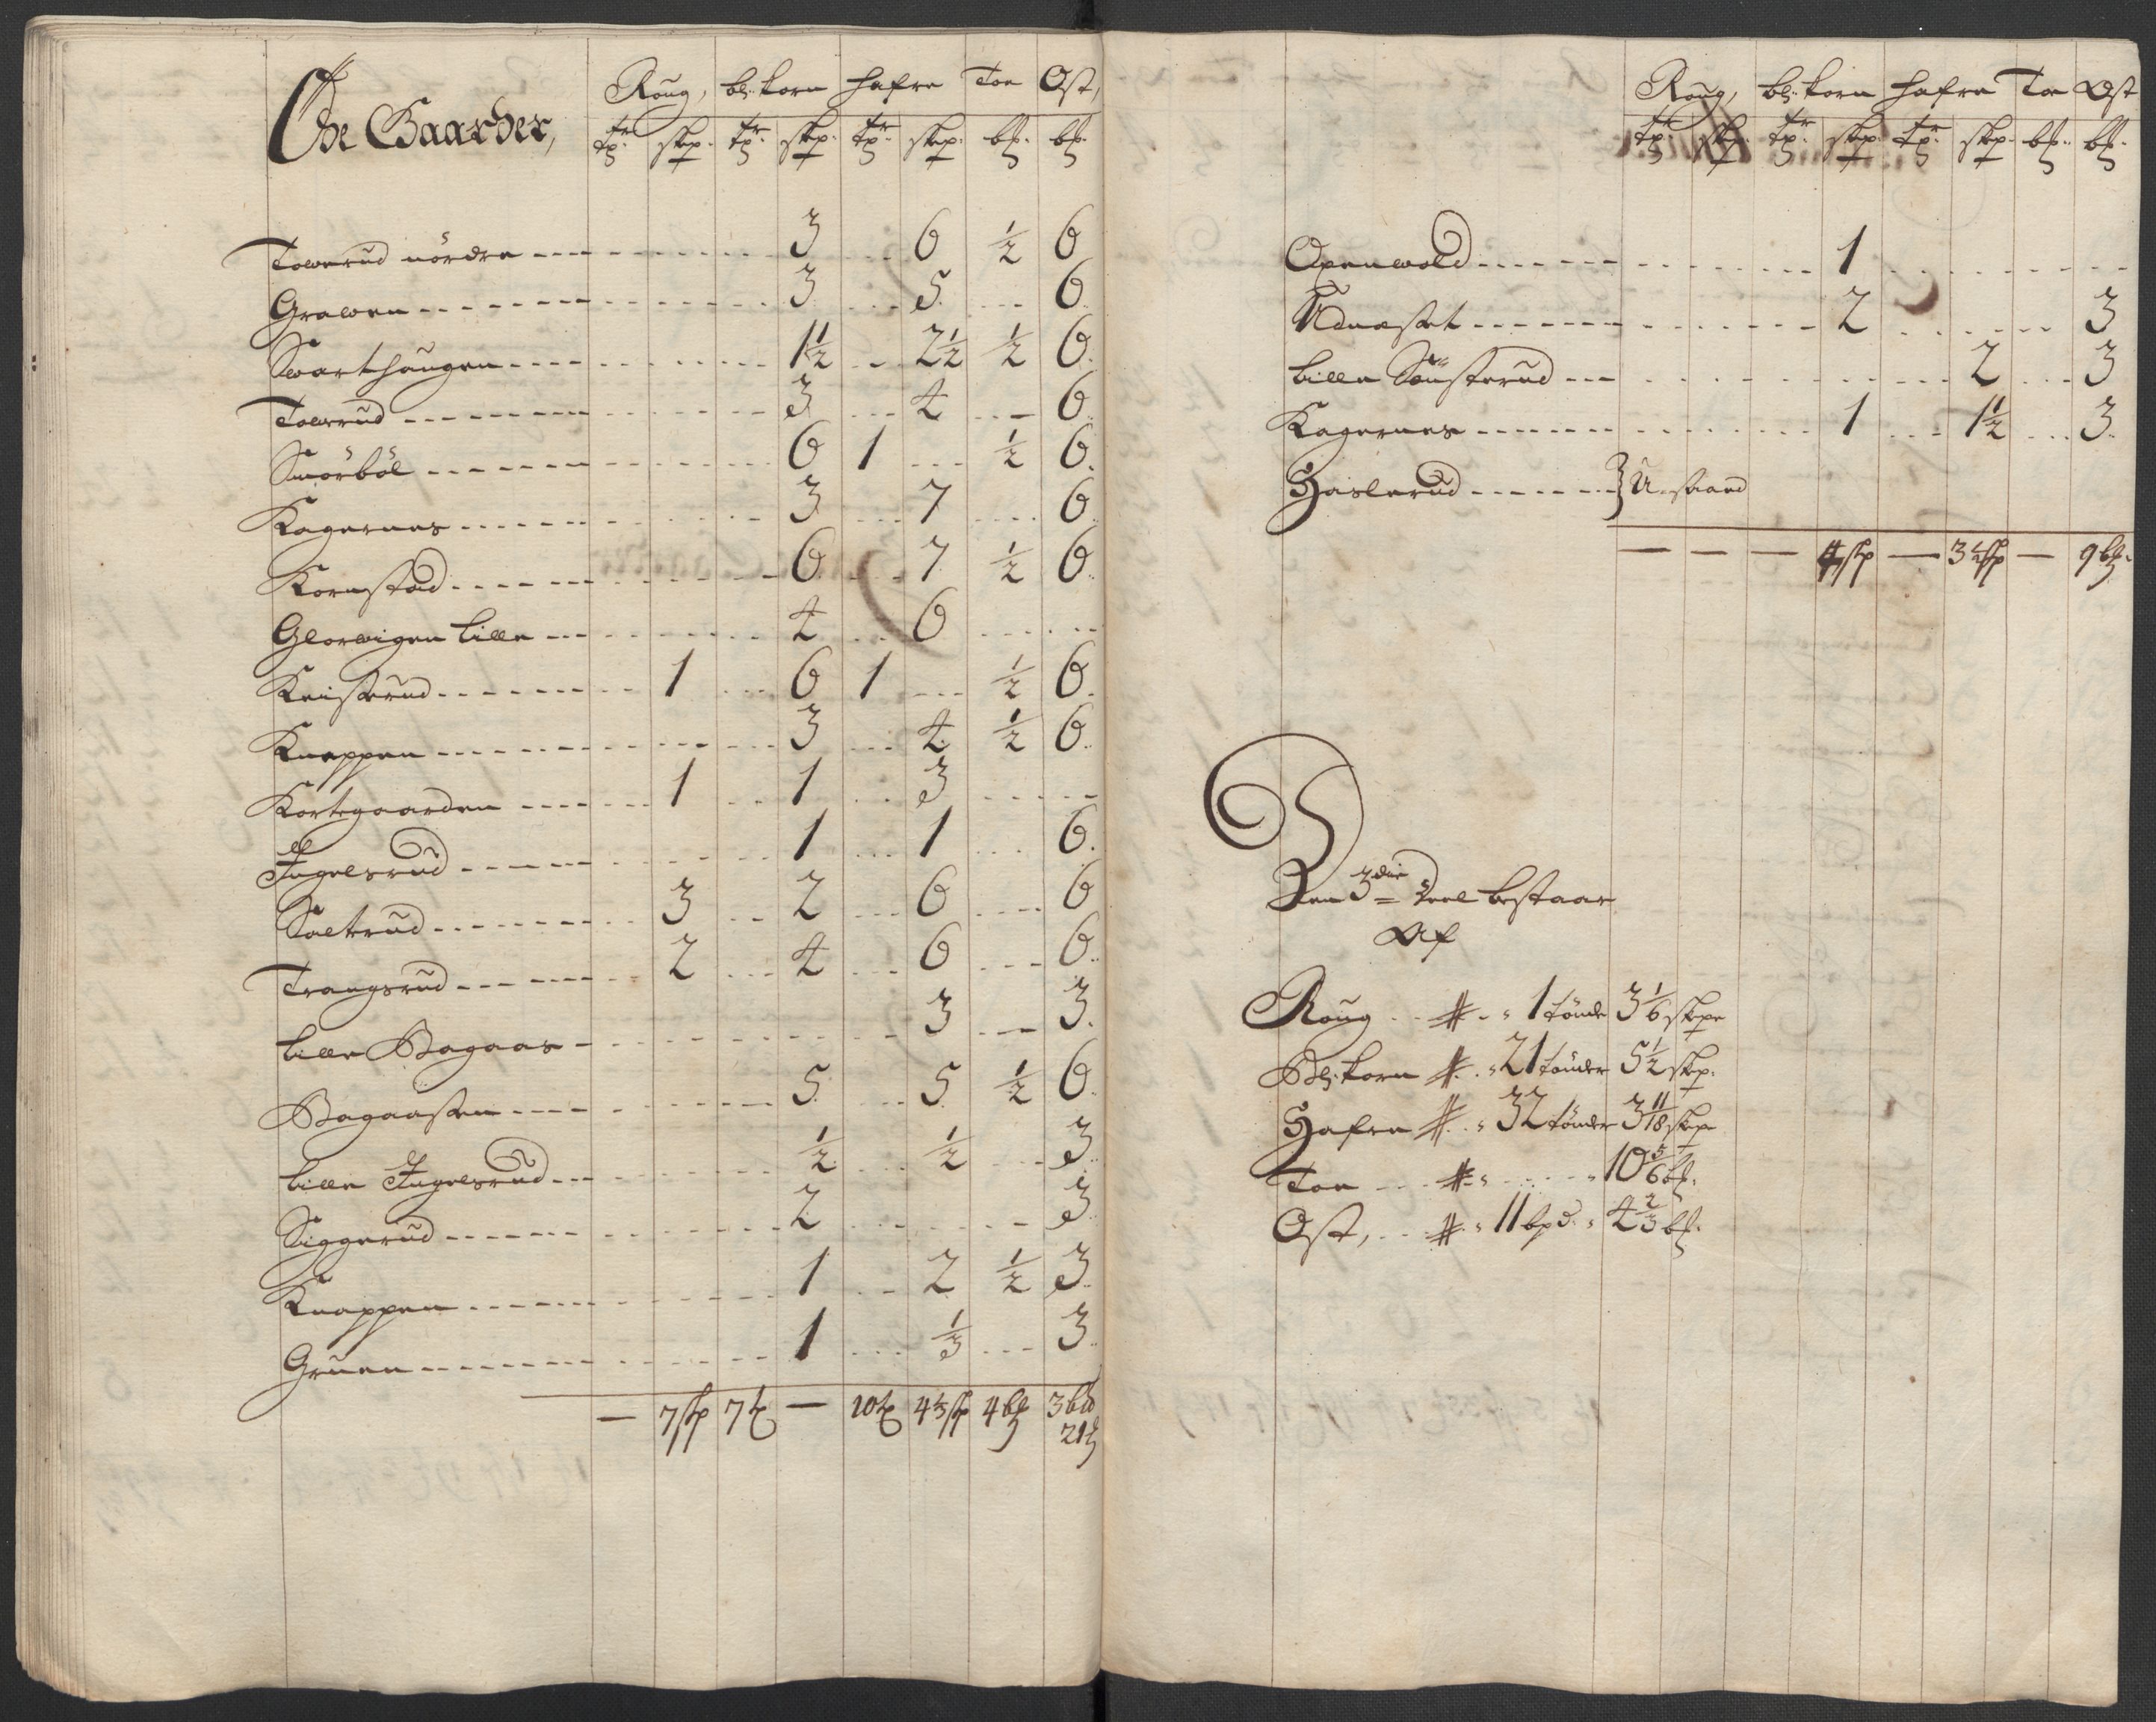 Øde Gaarder,
Roug, bl: korn hafre Toe Ost,
tr. skp. tr. skp. tr. skp. bs. bs.
Towerud nördre 3 6 ½ 6
Grawen 3 5 6
Swarthaugen 1½ 2½ ½ 6
Towrud 3 4 6
Smörböl 6 1 ½ 6
Kagernes 3 7 6
Kornstad 6 7 ½ 6
Glorwigen Lille 4 6
Knisterud 1 6 1 ½ 6
Knappen 3 4 ½ 6
Kortegaarden 1 1 3
Ingelsrud 1 1 6
Saltrud 3 2 6 6
Trangsrud 2 4 6 6
Lille Bagaas 3 3
Bagaasen 5 5 ½ 6
Lille Ingelsrud ½ ½ 3
Siggerud 2 3
Knappen 1 2 ½ 3
Gruen 1 ⅓ 3
— 7 skp 7 t — 10 t 4⅓ skp 4 b 3 b
21
Roug, bl: korn hafre Toe Ost
tr. skp. tr. skp. tr. skp. bs. bs.
Openwold 1
Udnæset 2 3
Lille Sönsterud 2 3
Kagernes 1 1½ 3
Haslerud U-staaed
— — — 4 skp — 3½ skp — 9 b
Den 3die Deel bestaar
Af
Roug # 1 tönde 3 1/6 skpe
Bl: korn # 21 tönder 5½ skp.
Hafre # 32 tönder 3 11/18 skpe
Toe # 10 5/6 b.
Ost, # 11 bpd. 4 2/3 b.